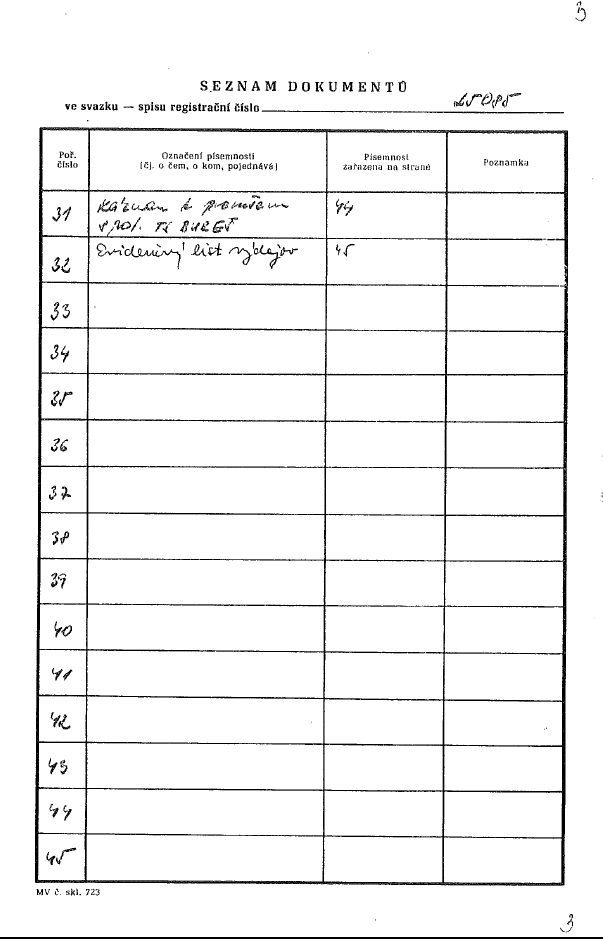 3
SEZNAM DOKUMENTŮ
ve svazku — spisu registrační číslo 25085
Poř. číslo
Označení písemnosti (čj. o čem, o kom, pojednává)
Písemnost zařazena na straně
Poznámka
31 Záznam k 44
TS BUREŠ
32 Evidenční list výdejov 45
33
34
35
36
37
38
39
40
41
42
43
44
45
MV č. skl. 723
3